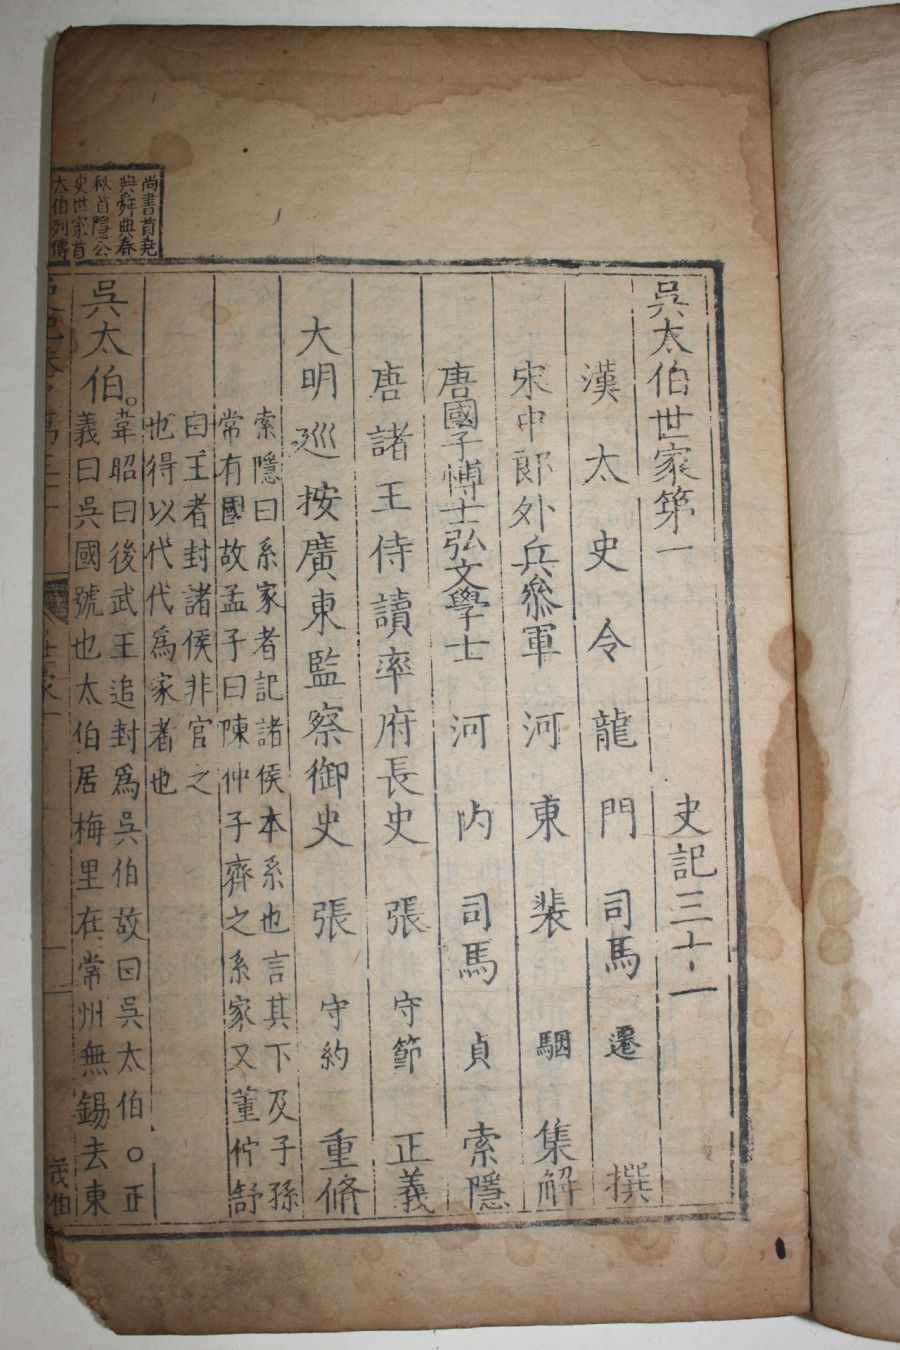 吳太伯世家第一 史記三十一
漢太史令龍門司馬遷撰
宋中郎外兵參軍河東裴駰集解
唐國子博士弘文學士河內司馬貞索隱
唐諸王侍讀率府長史張守節正義
大明巡按廣東監察御史張守約重脩
索隱曰系家者記諸侯本系也言其下及子孫
常有國故孟子曰陳仲子齊之系家又董仲舒
曰王者封諸侯非官之
也得以代代爲家者也
吳太伯。韋昭曰後武王追封爲吳伯故曰吳太伯○正
義曰吳國號也太伯居梅里在常州無錫去東
尚書首堯
典舜典春
秋首隱公
史世家首
大伯列傳
世家一
茂伯